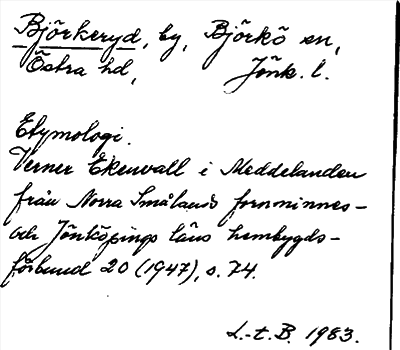 Björkeryd, by, Björkö sn,
Östra hd, Jönk. l.
Etymologi.
Verner Ekenvall i Meddelanden
från Norra Smålands fornminnes-
och Jönköpings läns hembygds-
förbund 20 (1947), s. 74.
L.-t. B. 1983.